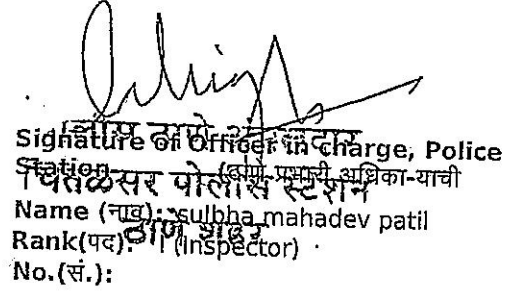 ठाणे अंमलदार
Signature of Officer in charge, Police
Station (ठाणे प्रभारी अधिका-याची
चितळसर पोलीस स्टेशन
Name (नाव): sulbha mahadev patil
ठाणे शहर
Rank(पद): I (Inspector)
No.(सं.):